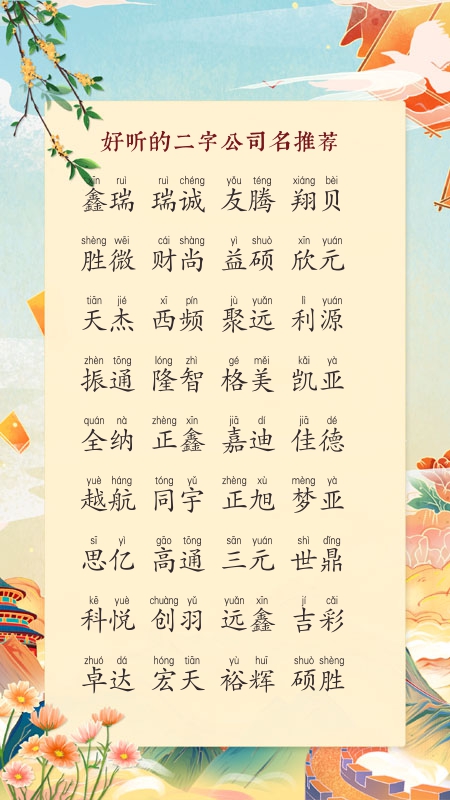 好听的二字公司名推荐
xīn ruì ruì chéng yǒu téng xiáng bèi
鑫瑞 瑞诚 友腾 翔贝
shèng wēi cái shàng yì shuò xīn yuán
胜微 财尚 益硕 欣元
tiān jié xī pín jù yuǎn lì yuán
天杰 西频 聚远 利源
zhèn tōng lóng zhì gé měi kǎi yà
振通 隆智 格美 凯亚
quán nà zhèng xīn jiā dí jiā dé
全纳 正鑫 嘉迪 佳德
yuè háng tóng yǔ zhèng xù mèng yà
越航 同宇 正旭 梦亚
sī yì gāo tōng sān yuán shì dǐng
思亿 高通 三元 世鼎
kē yuè chuàng yǔ yuǎn xīn jí cǎi
科悦 创羽 远鑫 吉彩
zhuó dá hóng tiān yù huī shuò shèng
卓达 宏天 裕辉 硕胜